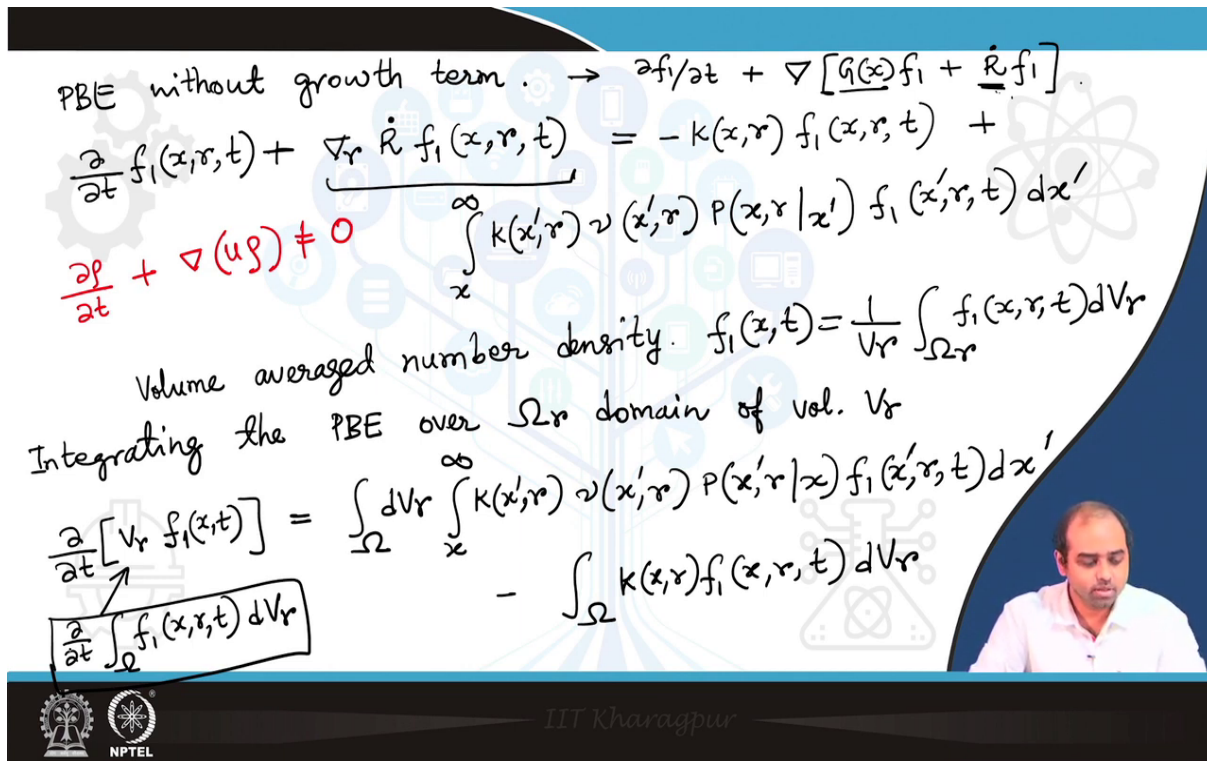 PBE without growth term. → ∂f₁/∂t + ∇[G(x)f₁ + Ṙf₁].
∂/∂t f₁(x,r,t) + ∇ᵣ Ṙ f₁(x,r,t) = -K(x,r) f₁(x,r,t) +
∫ₓ^∞ K(x′,r) ν(x′,r) P(x,r|x′) f₁(x′,r,t) dx′
∂ρ/∂t + ∇(uρ) ≠ 0
Volume averaged number density. f₁(x,t) = 1/Vᵣ ∫_Ωr f₁(x,r,t)dVᵣ
Integrating the PBE over Ωr domain of vol. Vᵣ
∂/∂t [Vᵣ f₁(x,t)] = ∫_Ω dVᵣ ∫ₓ^∞ K(x′,r) ν(x′,r) P(x′,r|x) f₁(x′,r,t)dx′
- ∫_Ω K(x,r)f₁(x,r,t) dVᵣ
∂/∂t ∫_Ω f₁(x,r,t) dVᵣ
IIT Kharagpur
NPTEL